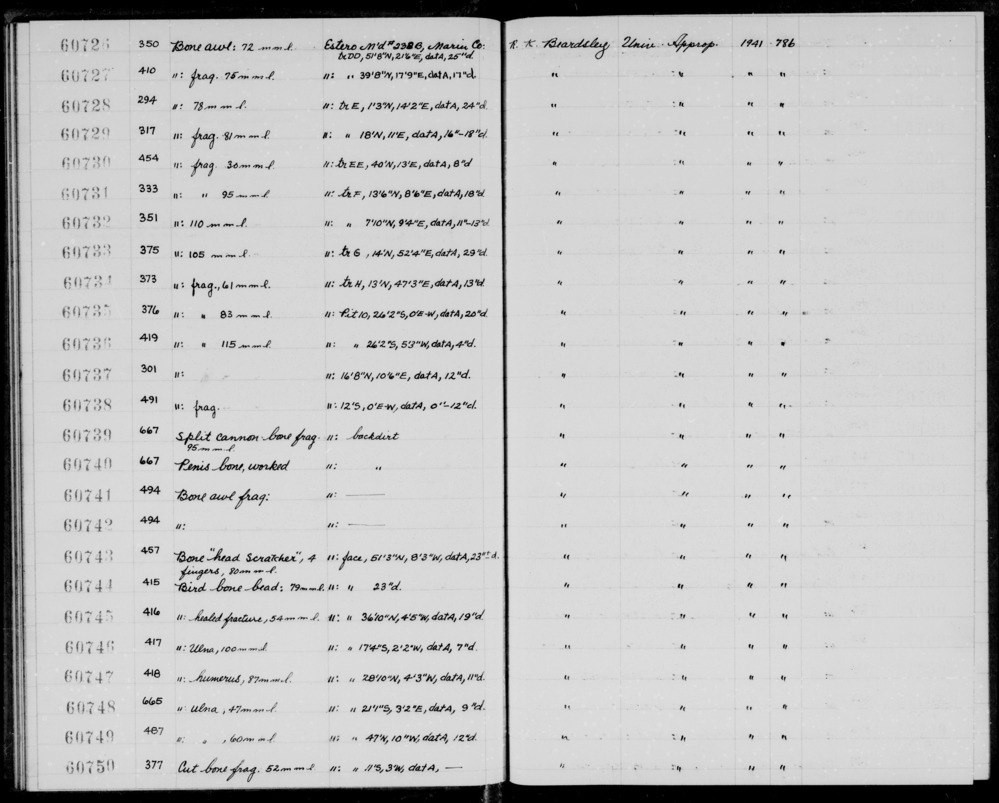 60726 350 Bone awl: 72 mm l. Estero M'd # 232 B, Marin Co: R. K. Beardsley Univ. Approp. 1941 - 786
tr DD, 51'8"N, 21'6"E, dat A, 25"d
60727 410 〃: frag. 75 mm l. 〃: 〃 39'8"N, 17'9"E, dat A, 17"d. 〃 〃 〃 〃
60728 294 〃: 78 mm l. 〃: tr E, 1'3"N, 14'2"E, dat A, 24"d. 〃 〃 〃 〃
60729 317 〃: frag. 81 mm l. 〃: 〃 18'N, 11'E, dat A, 16"-18"d. 〃 〃 〃 〃
60730 454 〃: frag. 30 mm l. 〃: tr EE, 40'N, 13'E, dat A, 8"d 〃 〃 〃 〃
60731 333 〃: 〃 95 mm l. 〃: tr F, 13'6"N, 8'6"E, dat A, 18"d 〃 〃 〃 〃
60732 351 〃: 110 mm l. 〃: 〃 7'10"N, 9'4"E, dat A, 11"-13"d 〃 〃 〃 〃
60733 375 〃: 105 mm l. 〃: tr G, 14'N, 52'4"E, dat A, 29"d. 〃 〃 〃 〃
60734 373 〃: frag., 61 mm l. 〃: tr H, 13'N, 47'3"E, dat A, 13"d. 〃 〃 〃 〃
60735 376 〃: 〃 83 mm l. 〃: Pit 10, 26'2"S, 0'E-W, dat A, 20"d. 〃 〃 〃 〃
60736 419 〃: 〃 115 mm l. 〃: 〃 26'2"S, 5'3"W, dat A, 4"d. 〃 〃 〃 〃
60737 301 〃: 〃: 16'8"N, 10'6"E, dat A, 12"d. 〃 〃 〃 〃
60738 491 〃: frag. 〃: 12'S, 0'E-W, dat A, 0"-12"d. 〃 〃 〃 〃
60739 667 Split cannon bone frag. 〃: backdirt 〃 〃 〃 〃
95 mm l.
60740 667 Penis bone, worked 〃: 〃 〃 〃 〃 〃
60741 494 Bone awl frag: 〃: — 〃 〃 〃 〃
60742 494 〃: 〃: — 〃 〃 〃 〃
60743 457 Bone "head scratcher", 4 〃: face, 51'3"N, 8'3"W, dat A, 23"d. 〃 〃 〃 〃
fingers, 80 mm l.
60744 415 Bird bone bead: 79 mm l. 〃: 〃 23"d. 〃 〃 〃 〃
60745 416 〃: healed fracture, 54 mm l. 〃: 〃 36'10"N, 4'5"W, dat A, 19"d. 〃 〃 〃 〃
60746 417 〃: Ulna, 100 mm l 〃: 〃 17'4"S, 2'2"W, dat A, 7"d. 〃 〃 〃 〃
60747 418 〃: humerus, 87 mm l. 〃: 〃 28'10"N, 4'3"W, dat A, 11"d. 〃 〃 〃 〃
60748 665 〃: Ulna, 47 mm l. 〃: 〃 21'1"S, 3'2"E, dat A, 9"d. 〃 〃 〃 〃
60749 487 〃: 〃, 60 mm l 〃: 〃 47'N, 10"W, dat A, 12"d. 〃 〃 〃 〃
60750 377 Cut bone frag. 52 mm l 〃: 〃 11'S, 3'W, dat A, — 〃 〃 〃 〃